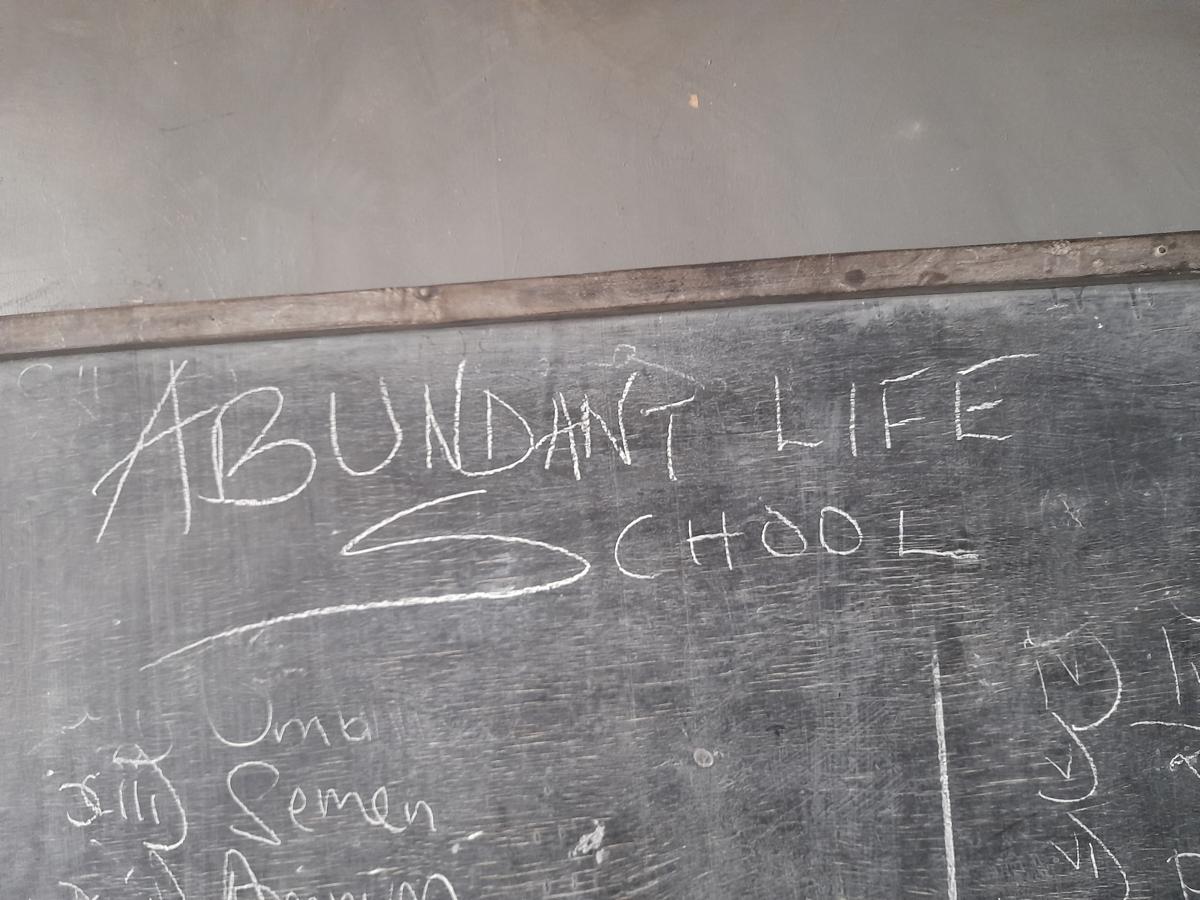 ABUNDANT LIFE
SCHOOL
xiii) Semen
iv)
v)
vi)